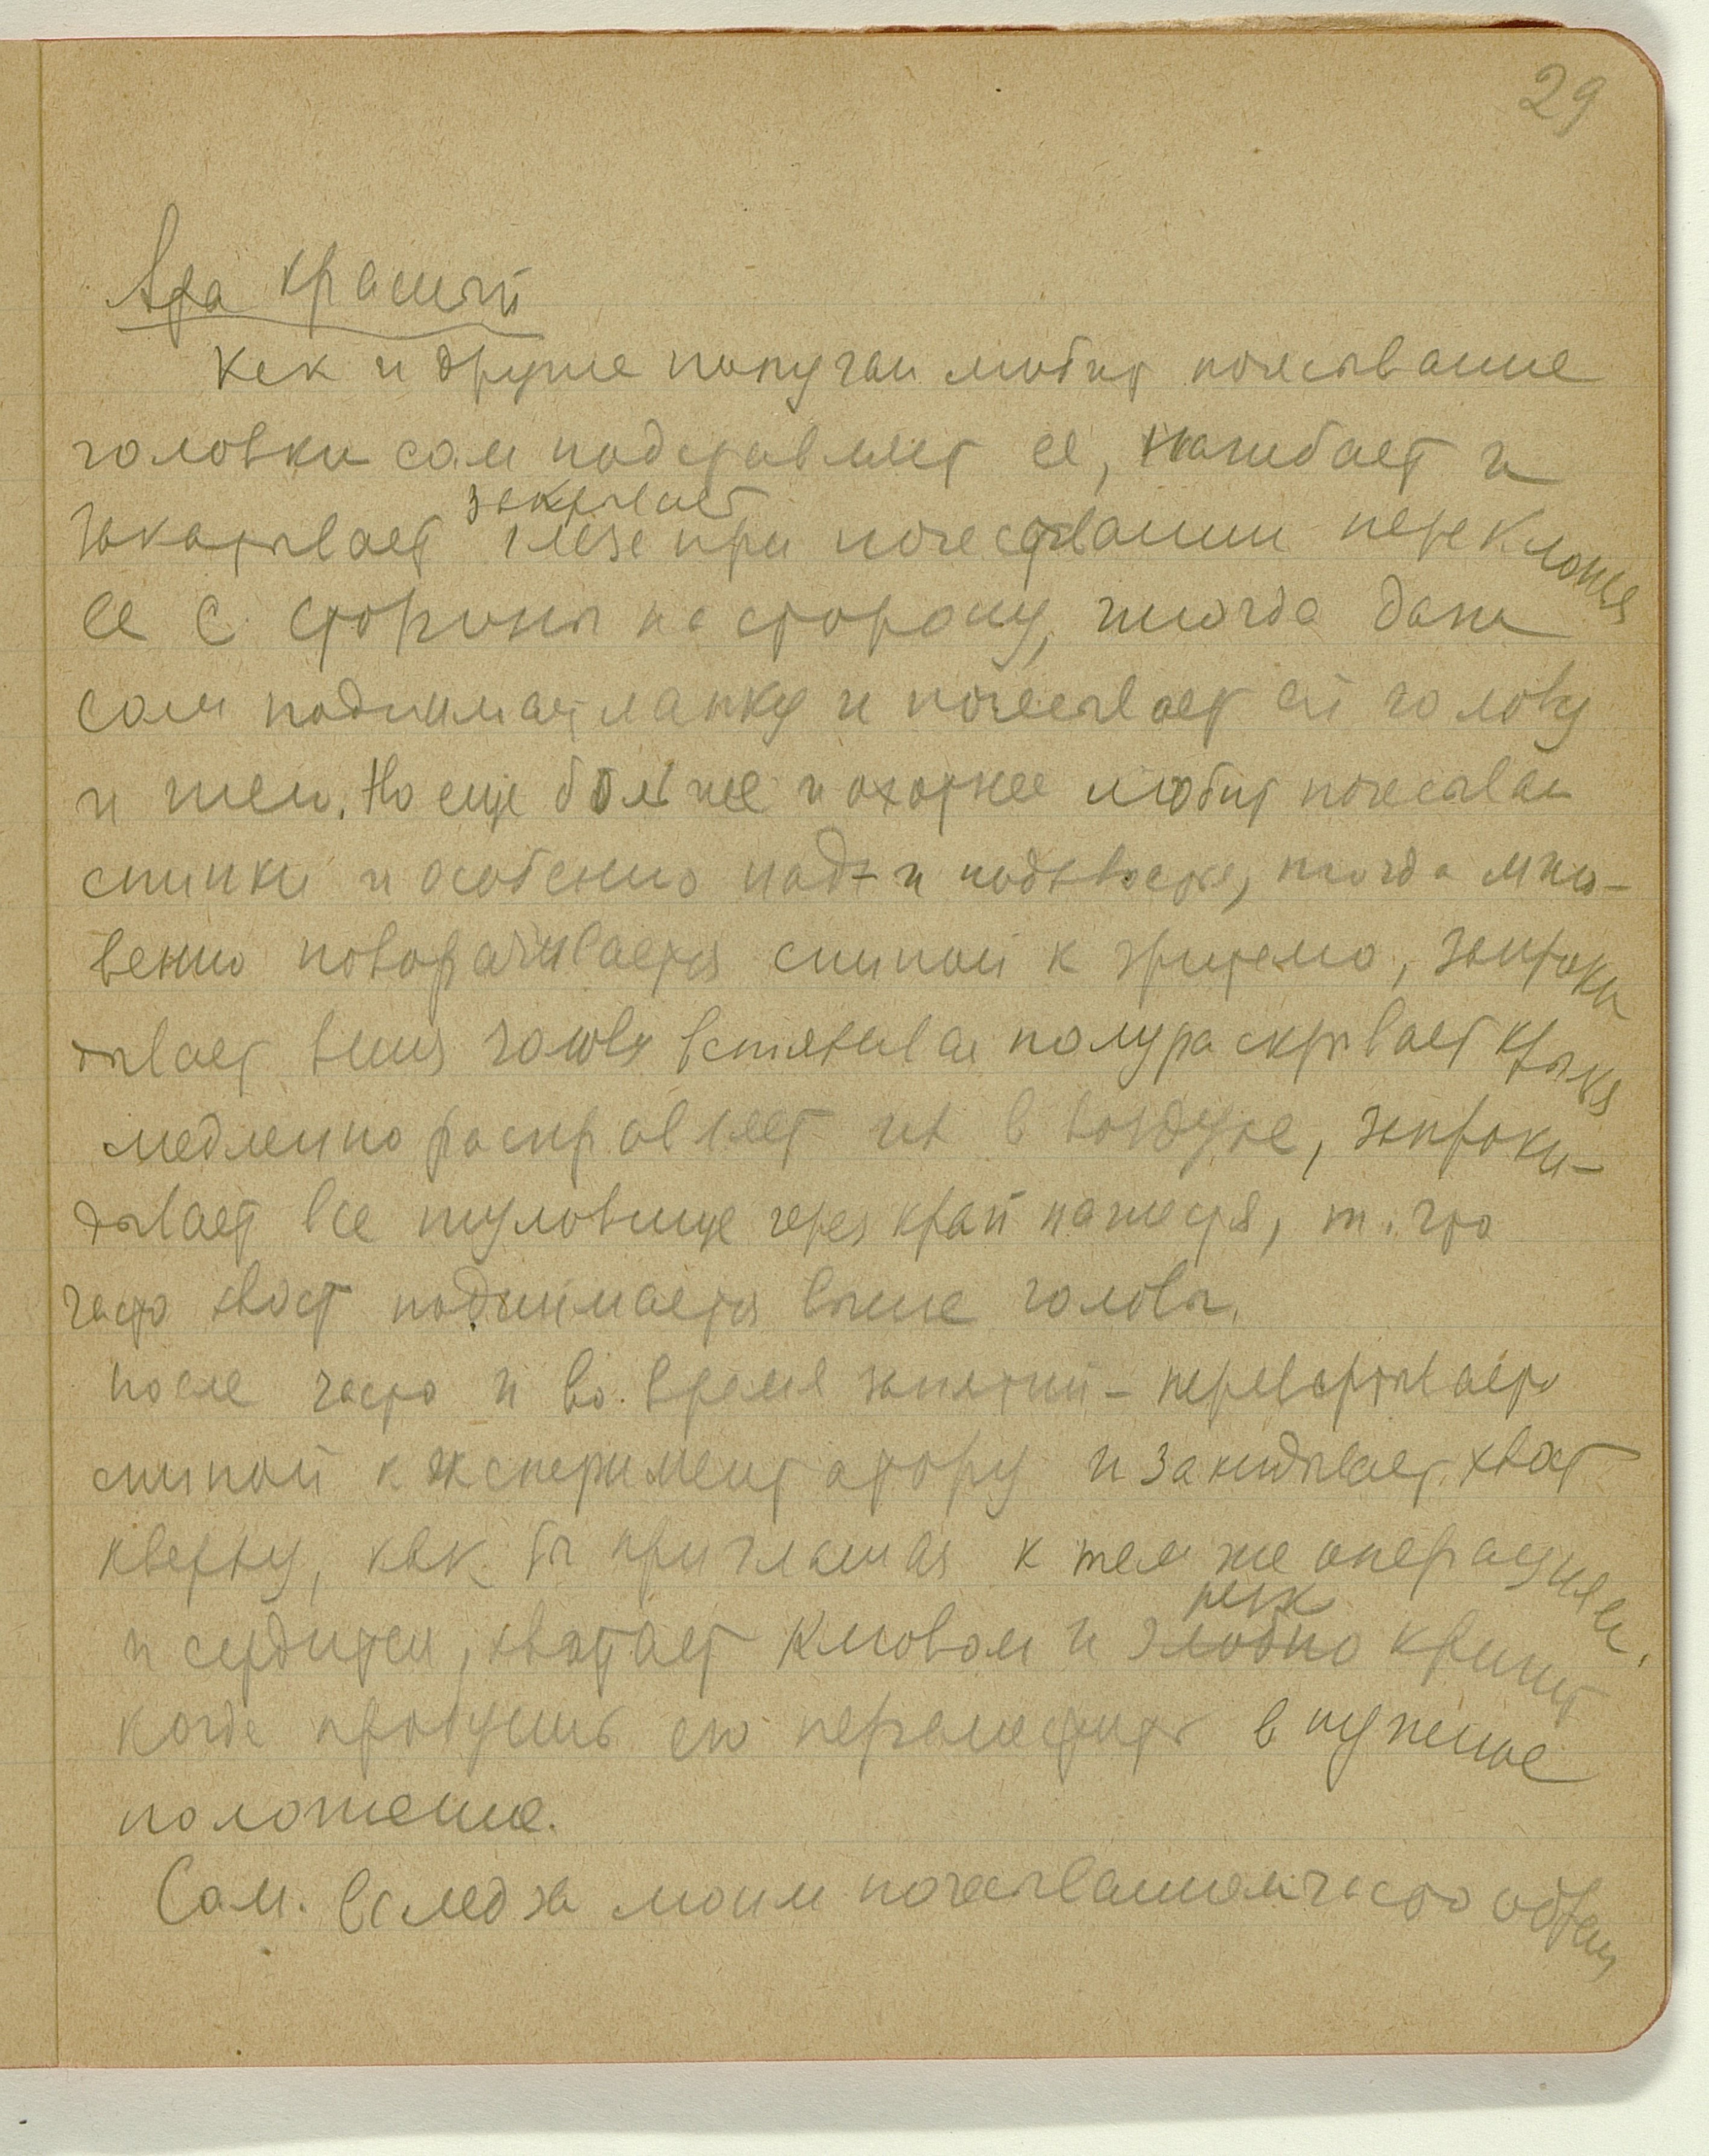 29
Ара красный
Как и другие попугаи любит почесывание
головки сам подставляет ее, нагибает и
закатывает закрывает глаза при почесывании переклоняя
ее с стороны на сторону, иногда даже
сам поднимает лапку и почесывает ей голову
и шею. Но еще больше и охотнее любит почесыван
спинки и особенно над- и подхвостья, тогда мгно-
венно поворачивается спиной к зрителю, запроки
дывает вниз голову полураскрывает крылья
медленно расправляет их в воздухе, запроки-
дывает все туловище через край нашеста, т. что
часто хвост поднимается выше головы.
после часто и во время занятий - перевертывается
спиной к экспериментатору и закидывает хвост
кверху, как бы приглашая к тем же операциям.
и сердится, хватает клювом и злобно резк кричит
когда пробуешь его переместить в нужное
положение.
Сам. вслед за моим почесыванием часто